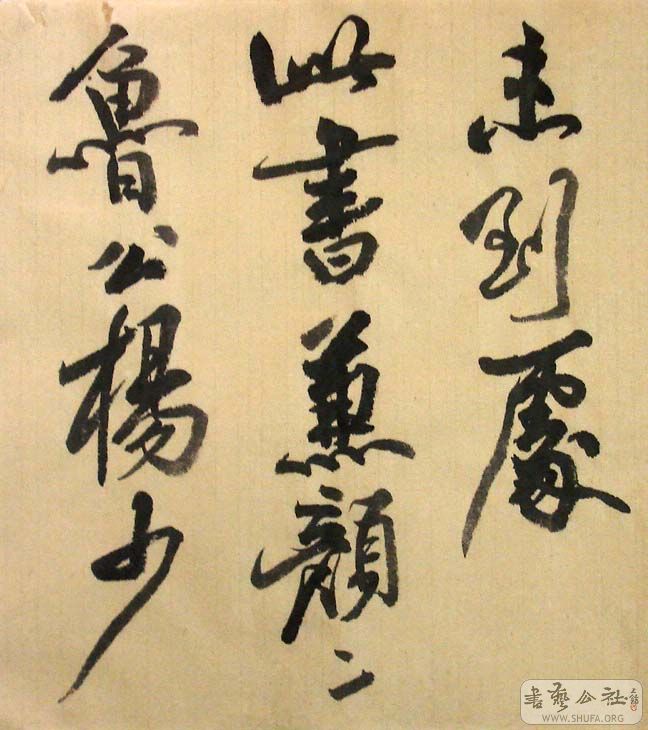 未到處
此書兼顏
魯公楊少
書藝公社
WWW.SHUFA.ORG